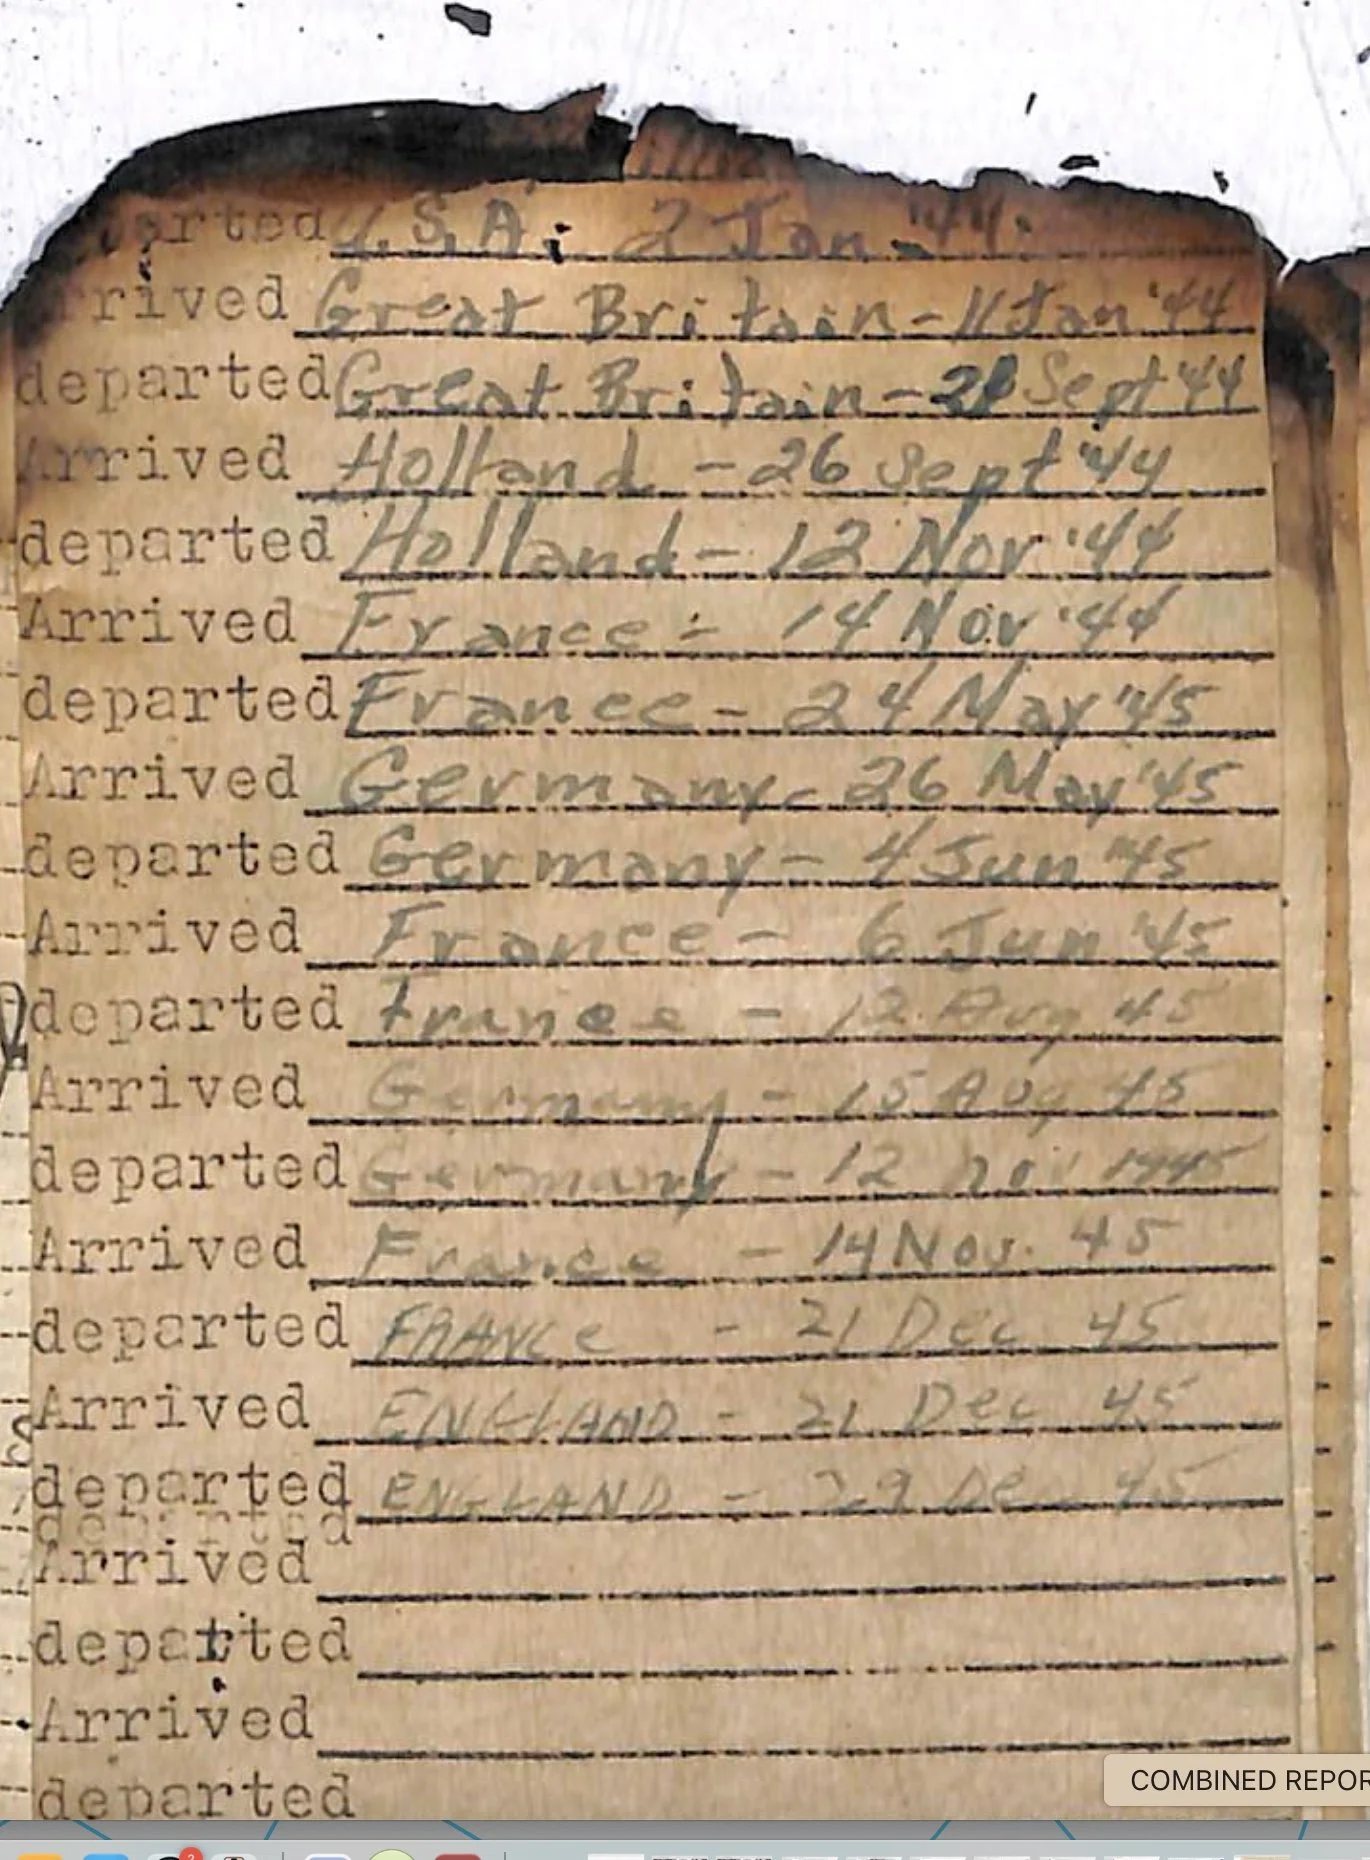 departed U.S.A. 2 Jan. '44.
Arrived Great Britain - 11 Jan '44
departed Great Britain - Sept '44
Arrived Holland - 26 Sept '44
departed Holland - 12 Nov '44
Arrived France - 14 Nov '44
departed France - 24 May '45
Arrived Germany - 26 May '45
departed Germany - 4 Jun '45
Arrived France - 6 Jun '45
departed France - 12 Aug 45
Arrived Germany - 15 Aug 45
departed Germany - 12 nov 1945
Arrived France - 14 Nov. 45
departed FRANCe - 21 Dec 45
Arrived ENGLAND - 21 Dec 45
departed ENGLAND - 29 Dec 45
departed
Arrived
departed
Arrived
departed
COMBINED REPOR
2